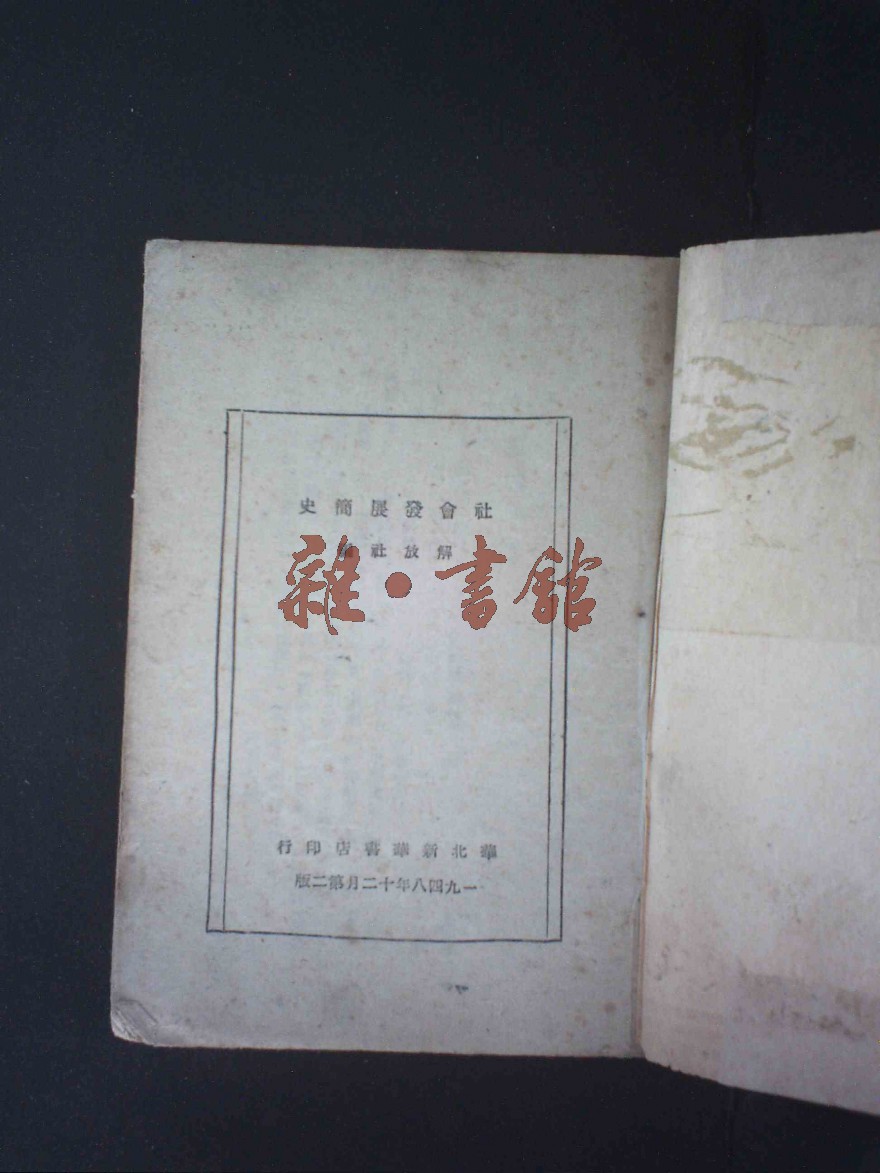 社會發展簡史
解放社編
雜·書館
華北新華書店印行
一九四八年十二月第二版